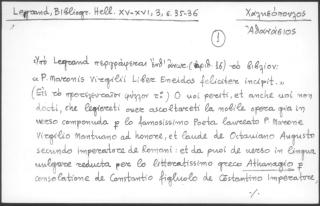 Legrand, Bibliogr. Hell. XV-XVI, 3, σ. 35-36
Χαλκεόπουλος
Ἀθανάσιος
!
Ὑπὸ Legrand περιγράφεται (ἀριθ. 16) τὸ βιβλίον:
« P. Maronis Virgilii Liber Eneidos feliciter incipit. »
(Εἰς τὸ φύλλον 2:) O uoi periti, et anche uoi non
docti, che legiereti over ascoltareti la nobile opera gia in
verso componuda p lo famosissimo Poeta laureato P. Marone
Virgilio Mantuano ad honore, et laude de Octauiano Augusto
secundo imperatore de Romani: et da puoi de uerso in lingua
uulgare reducta per lo litteratissimo greco Athanagio p
consolatione de Constantio figluolo de Costantino imperatore,
·/.